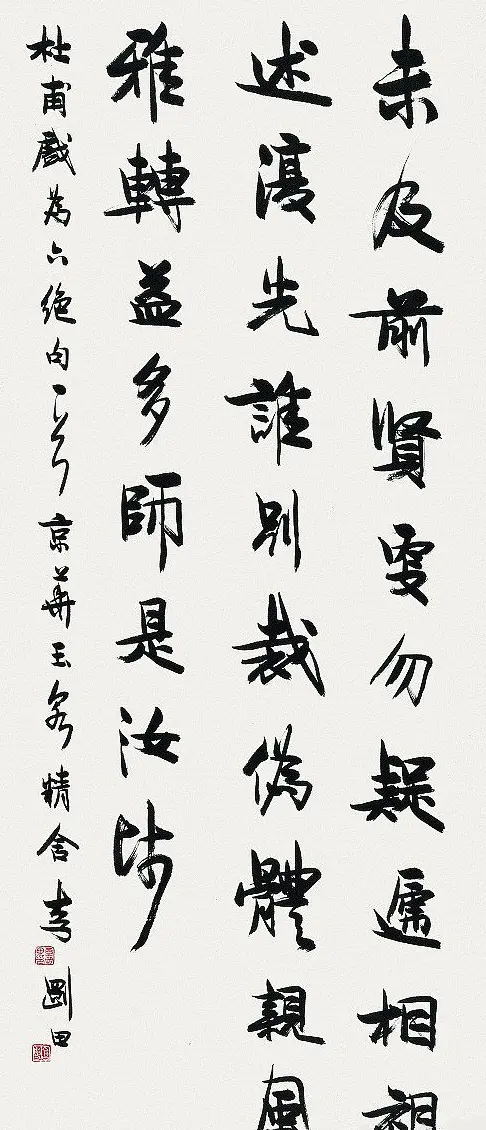 未及前賢更勿疑遞相祖
述復先誰別裁偽體親風
雅轉益多師是汝師
杜甫戲為六絕句一首京華玉精舍李剛田